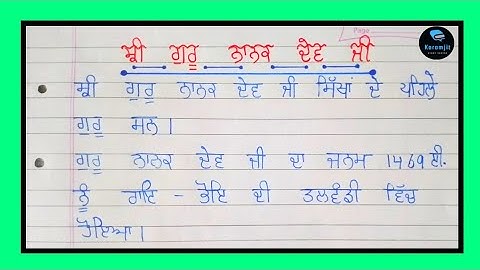 Page
Karamjit
ਸ਼੍ਰੀ ਗੁਰੂ ਨਾਨਕ ਦੇਵ ਜੀ
ਸ਼੍ਰੀ ਗੁਰੂ ਨਾਨਕ ਦੇਵ ਜੀ ਸਿੱਖਾਂ ਦੇ ਪਹਿਲੇ
ਗੁਰੂ ਸਨ।
ਗੁਰੂ ਨਾਨਕ ਦੇਵ ਜੀ ਦਾ ਜਨਮ 1469 ਈ.
ਨੂੰ ਰਾਇ - ਭੋਇ ਦੀ ਤਲਵੰਡੀ ਵਿੱਚ
ਹੋਇਆ।